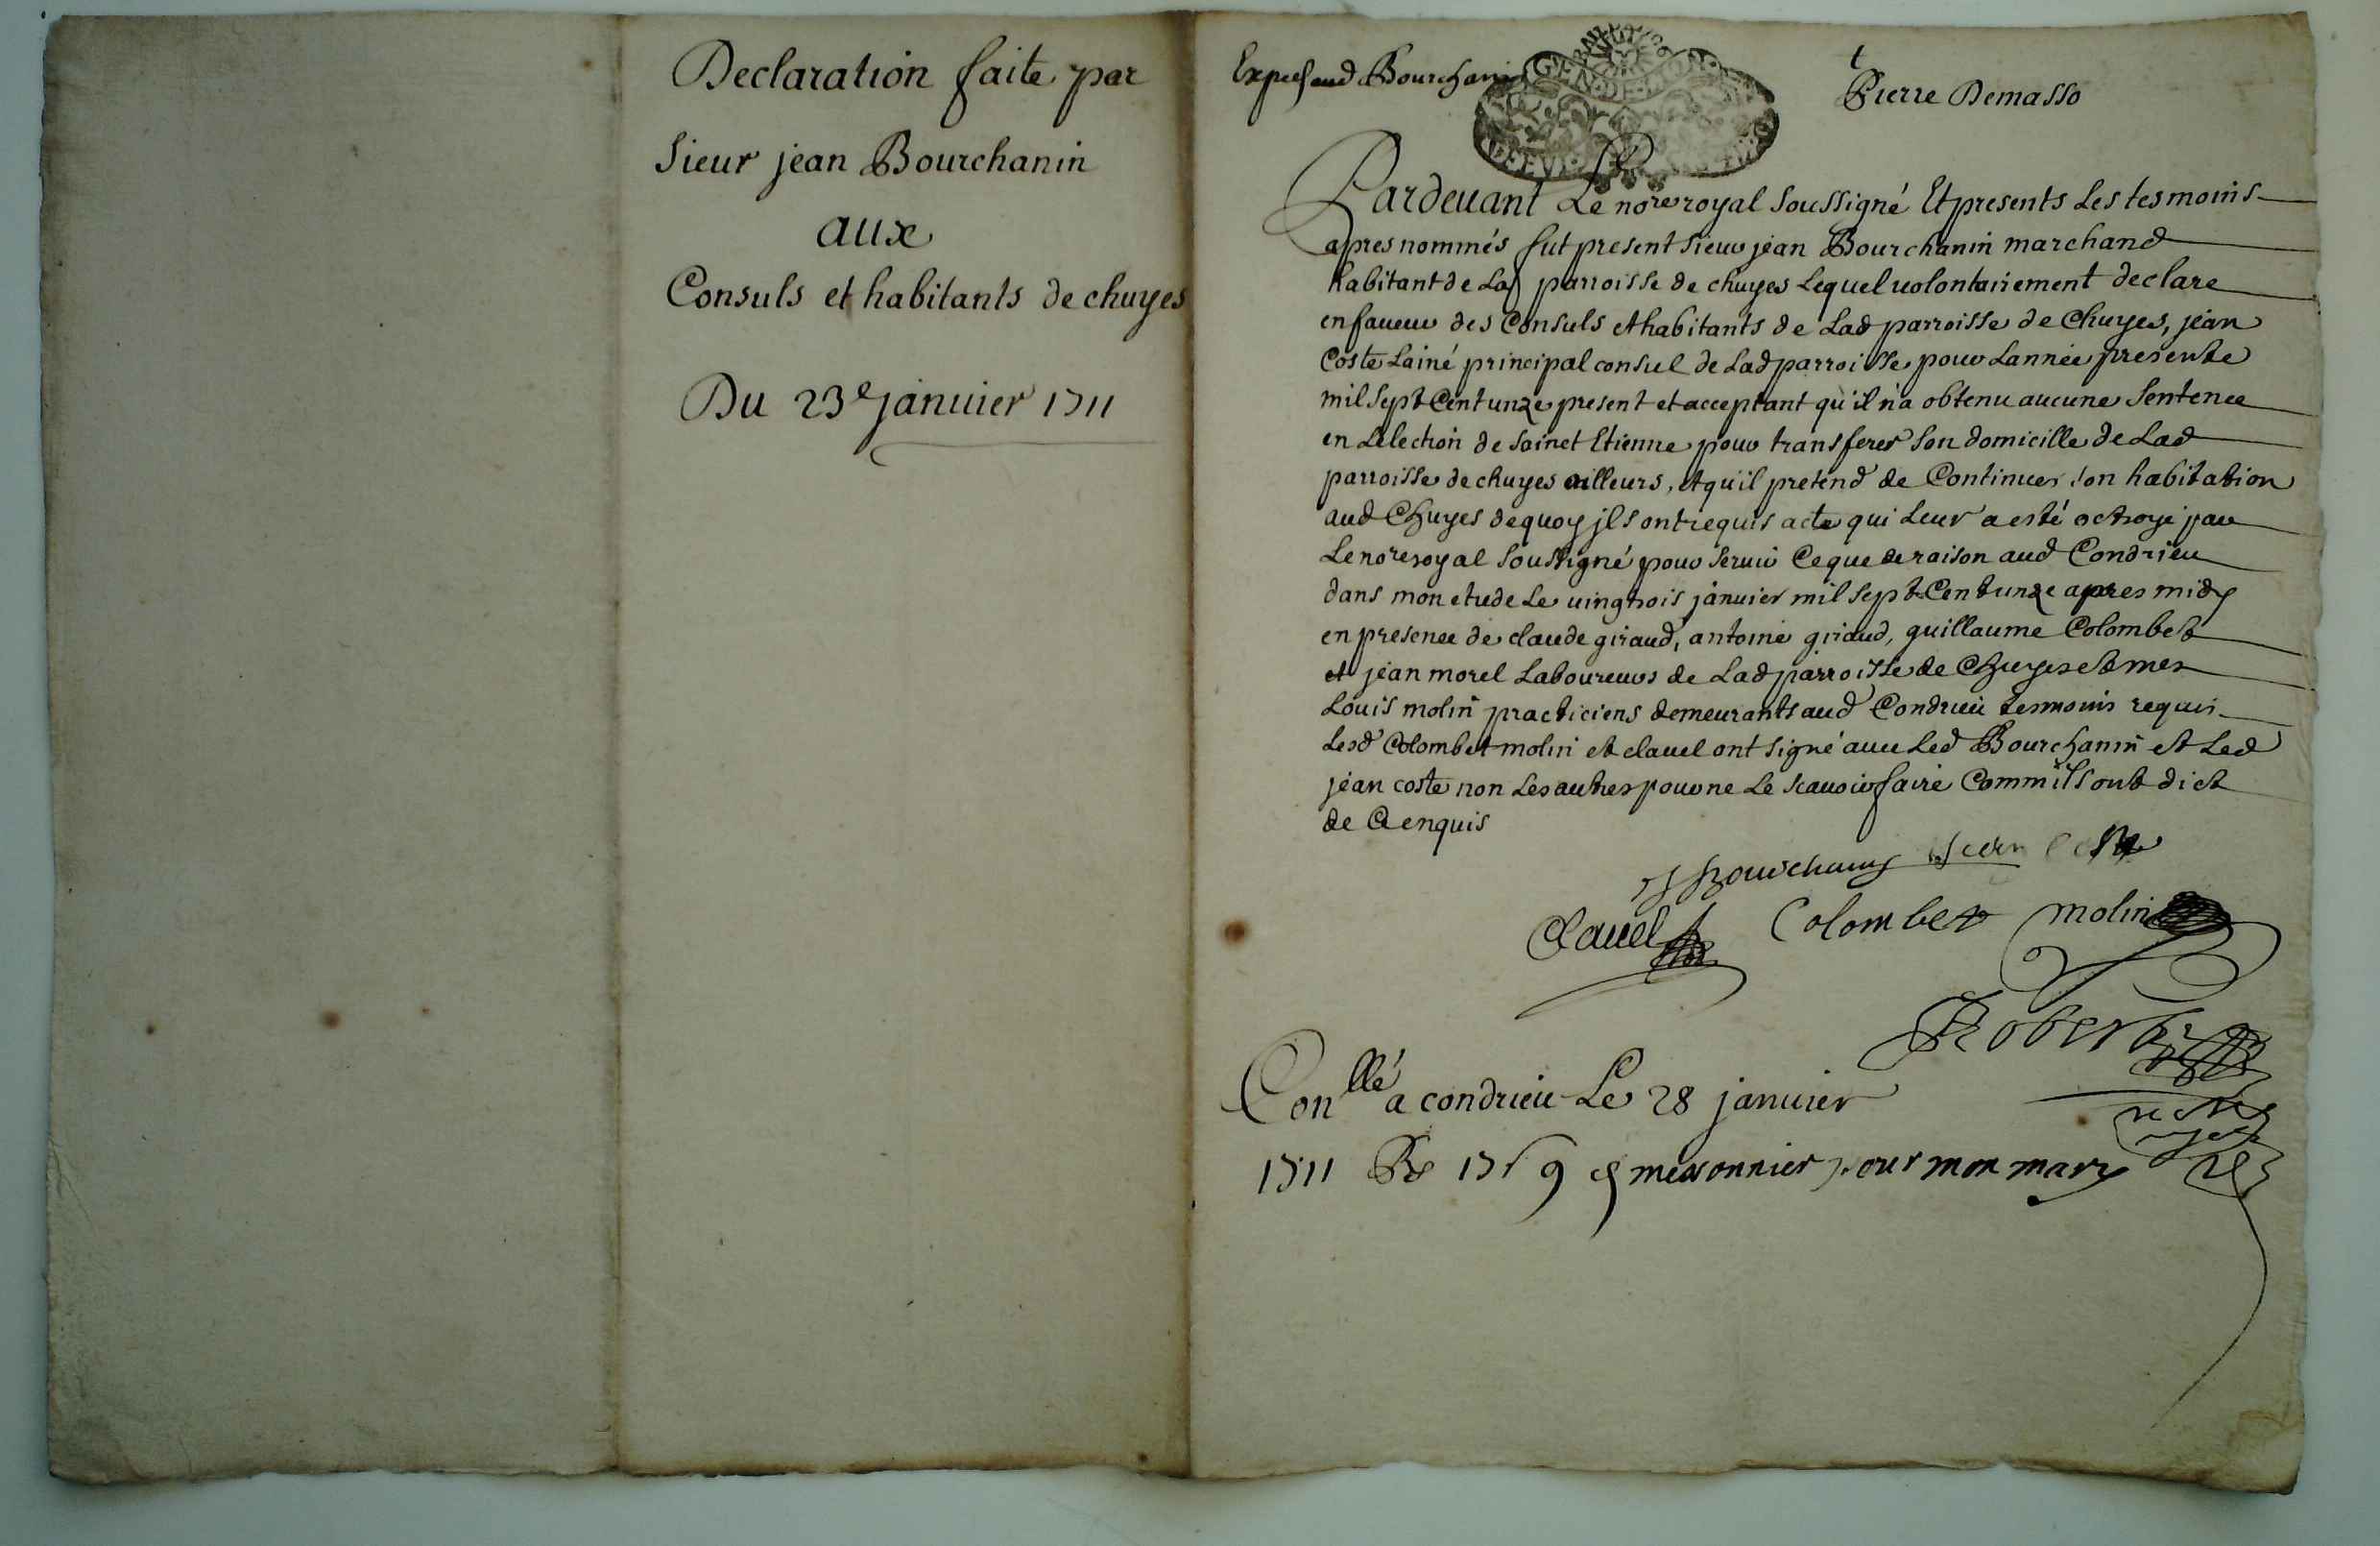 Declaration faite par
Sieur jean Bourchanin
aux
Consuls et habitants de chuyes
Du 23e janvier 1711
aud Bourchanin
Pierre Demasso
GEN DE LYON
Pardeuant Le nore royal Soussigné Et presents Les tesmoins
apres nommés fut present Sieur jean Bourchanin marchand
habitant de Lad parroisse de chuyes Lequel uolontairement declare
en faueur des Consuls et habitants de Lad parroisse de Chuyes, jean
Coste Lainé principal consul de Lad parroisse pour Lannée presente
mil Sept Cent unze present et acceptant qu'il n'a obtenu aucune Sentence
en Lelection de Sainct Etienne pour transferer Son domicille de Lad
parroisse de chuyes ailleurs, et qu'il pretend de Continuer son habitation
aud Chuyes dequoy jls ont requis acte qui Leur a esté octroyé par
Le nore royal Soussigné pour Seruir Ce que de raison aud Condrieu
dans mon etude Le uingtrois januier mil Sept Cent unze apres midy
en presence de claude giraud, antoine giraud, guillaume Colombet
et jean morel Laboureurs de Lad parroisse de Chuyes et mes
Louis molin practiciens demeurants aud Condrieu tesmoins requis
Lesd Colombet molin et clauel ont signé auec Led Bourchanin et Led
jean coste non Les autres pour ne Le scauoir faire Comm'ils ont dict
de Ce enquis
Bourchanin jean coste
Clauel Colombet molin
Robert
Conllé a condrieu Le 28 januier
1711 messonnier pour mon mary